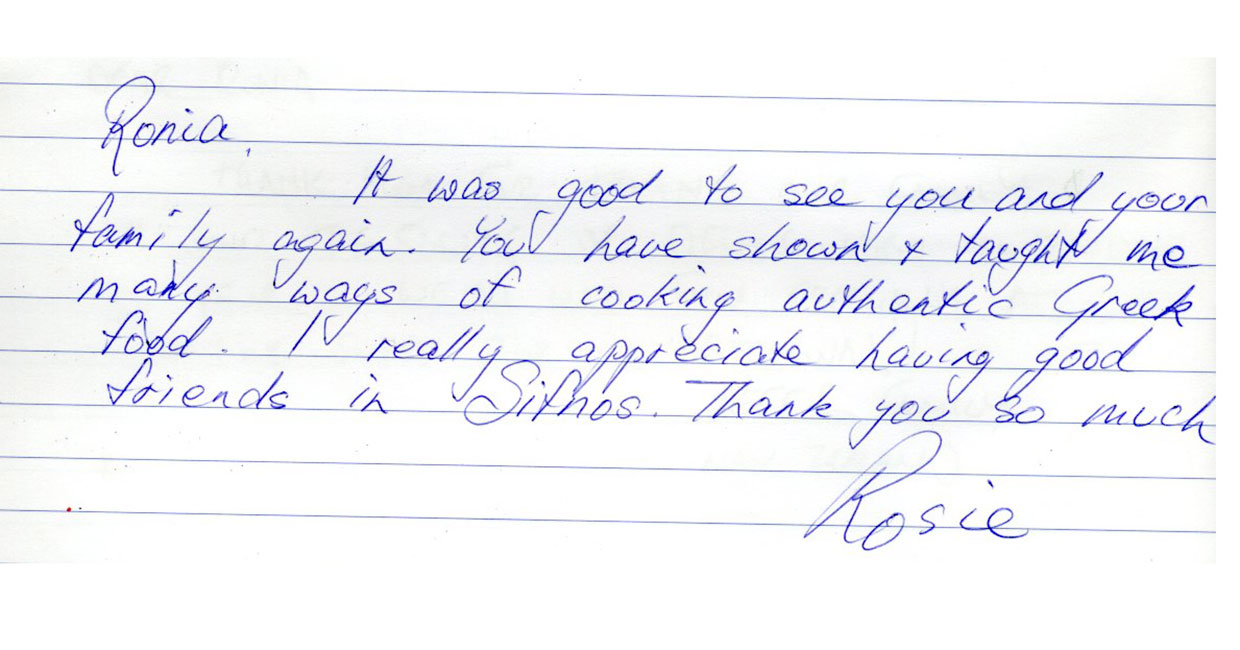 Ronia,
It was good to see you and your
family again. You have shown + taught me
many ways of cooking authentic Greek
food. I really appreciate having good
friends in Sifnos. Thank you so much
Rosie